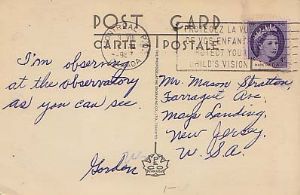 POST CARD
CARTE POSTALE
MONTREAL P.Q.
CANADA
PROTÉGEZ LA VUE
DES ENFANTS
PROTECT YOUR
CHILD'S VISION
I'm observing
at the observatory
as you can see
Gordon
Mr Mason Stratton,
Farragut Ave
Mays Landing
New Jersey.
U.S.A.